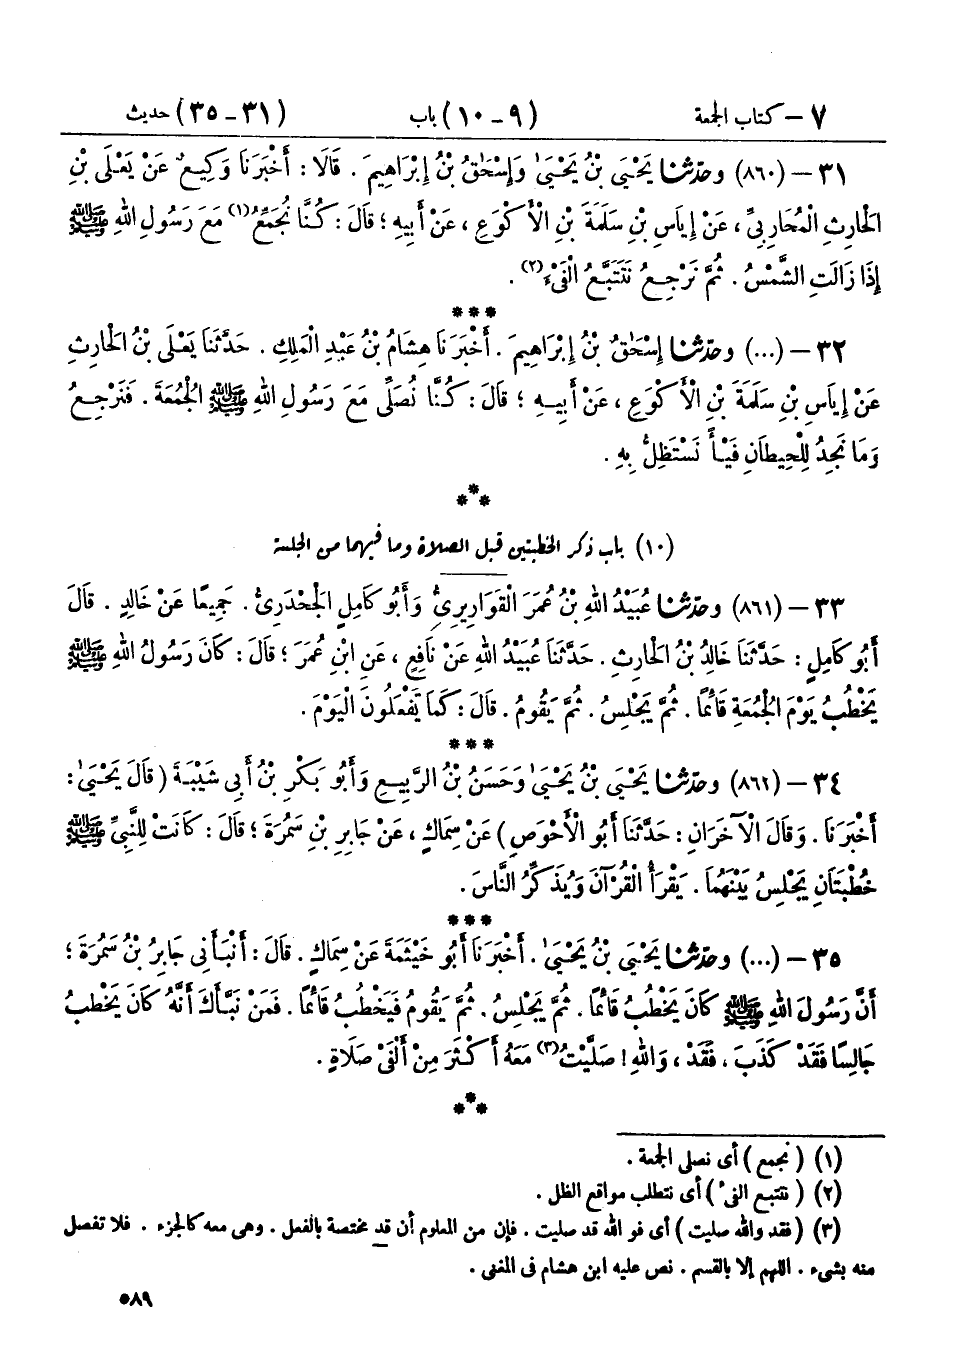 ٧ – كتاب الجمعة (٩ – ١٠) باب (٣١ – ٣٥) حديث
٣١ – (٨٦٠) وحدثنا يَحْيَى بْنُ يَحْيَىٰ وَإِسْحَاقُ بْنُ إِبْرَاهِيمَ . قَالَا : أَخْبَرَنَا وَكِيعٌ عَنْ يَعْلَى بْنِ
الْحَارِثِ الْمُحَارِبِيِّ ، عَنْ إِيَاسِ بْنِ سَلَمَةَ بْنِ الْأَكْوَعِ ، عَنْ أَبِيهِ ؛ قَالَ : كُنَّا نُجَمِّعُ (١) مَعَ رَسُولِ اللهِ ﷺ
إِذَا زَالَتِ الشَّمْسُ . ثُمَّ نَرْجِعُ نَتَتَبَّعُ الْفَيْءَ (٢) .
***
٣٢ – (...) وحدثنا إِسْحَاقُ بْنُ إِبْرَاهِيمَ . أَخْبَرَنَا هِشَامُ بْنُ عَبْدِ الْمَلِكِ . حَدَّثَنَا يَعْلَى بْنُ الْحَارِثِ
عَنْ إِيَاسِ بْنِ سَلَمَةَ بْنِ الْأَكْوَعِ ، عَنْ أَبِيهِ ؛ قَالَ : كُنَّا نُصَلِّي مَعَ رَسُولِ اللهِ ﷺ الْجُمُعَةَ . فَنَرْجِعُ
وَمَا نَجِدُ لِلْحِيطَانِ فَيْأً نَسْتَظِلُّ بِهِ .
***
(١٠) باب ذكر الخطبتين قبل الصلاة وما فيهما من الجلسة
٣٣ – (٨٦١) وحدثنا عُبَيْدُ اللهِ بْنُ عُمَرَ الْقَوَارِيرِيُّ وَأَبُو كَامِلٍ الْجَحْدَرِيُّ . جَمِيعًا عَنْ خَالِدٍ . قَالَ
أَبُو كَامِلٍ : حَدَّثَنَا خَالِدُ بْنُ الْحَارِثِ . حَدَّثَنَا عُبَيْدُ اللهِ عَنْ نَافِعٍ ، عَنِ ابْنِ عُمَرَ ؛ قَالَ : كَانَ رَسُولُ اللهِ ﷺ
يَخْطُبُ يَوْمَ الْجُمُعَةِ قَائِمًا . ثُمَّ يَجْلِسُ . ثُمَّ يَقُومُ . قَالَ : كَمَا يَفْعَلُونَ الْيَوْمَ .
***
٣٤ – (٨٦٢) وحدثنا يَحْيَى بْنُ يَحْيَىٰ وَحَسَنُ بْنُ الرَّبِيعِ وَأَبُو بَكْرِ بْنُ أَبِي شَيْبَةَ ( قَالَ يَحْيَىٰ :
أَخْبَرَنَا . وَقَالَ الْآخَرَانِ : حَدَّثَنَا أَبُو الْأَحْوَصِ ) عَنْ سِمَاكٍ ، عَنْ جَابِرِ بْنِ سَمُرَةَ ؛ قَالَ : كَانَتْ لِلنَّبِيِّ ﷺ
خُطْبَتَانِ يَجْلِسُ بَيْنَهُمَا . يَقْرَأُ الْقُرْآنَ وَيُذَكِّرُ النَّاسَ .
***
٣٥ – (...) وحدثنا يَحْيَى بْنُ يَحْيَىٰ . أَخْبَرَنَا أَبُو خَيْثَمَةَ عَنْ سِمَاكٍ . قَالَ : أَنْبَأَنِي جَابِرُ بْنُ سَمُرَةَ ؛
أَنَّ رَسُولَ اللهِ ﷺ كَانَ يَخْطُبُ قَائِمًا . ثُمَّ يَجْلِسُ . ثُمَّ يَقُومُ فَيَخْطُبُ قَائِمًا . فَمَنْ نَبَّأَكَ أَنَّهُ كَانَ يَخْطُبُ
جَالِسًا فَقَدْ كَذَبَ . فَقَدْ ، وَاللهِ ! صَلَّيْتُ (٣) مَعَهُ أَكْثَرَ مِنْ أَلْفَيْ صَلَاةٍ .
***
(١) ( نجمع ) أى نصلى الجمعة .
(٢) ( نتتبع الفىء ) أى نتطلب مواقع الظل .
(٣) ( فقد والله صليت ) أى فو الله قد صليت . فإن من المعلوم أن قد مختصة بالفعل . وهى معه كالجزء . فلا تفصل
منه بشىء . اللهم إلا بالقسم . نص عليه ابن هشام فى المغنى .
٥٨٩